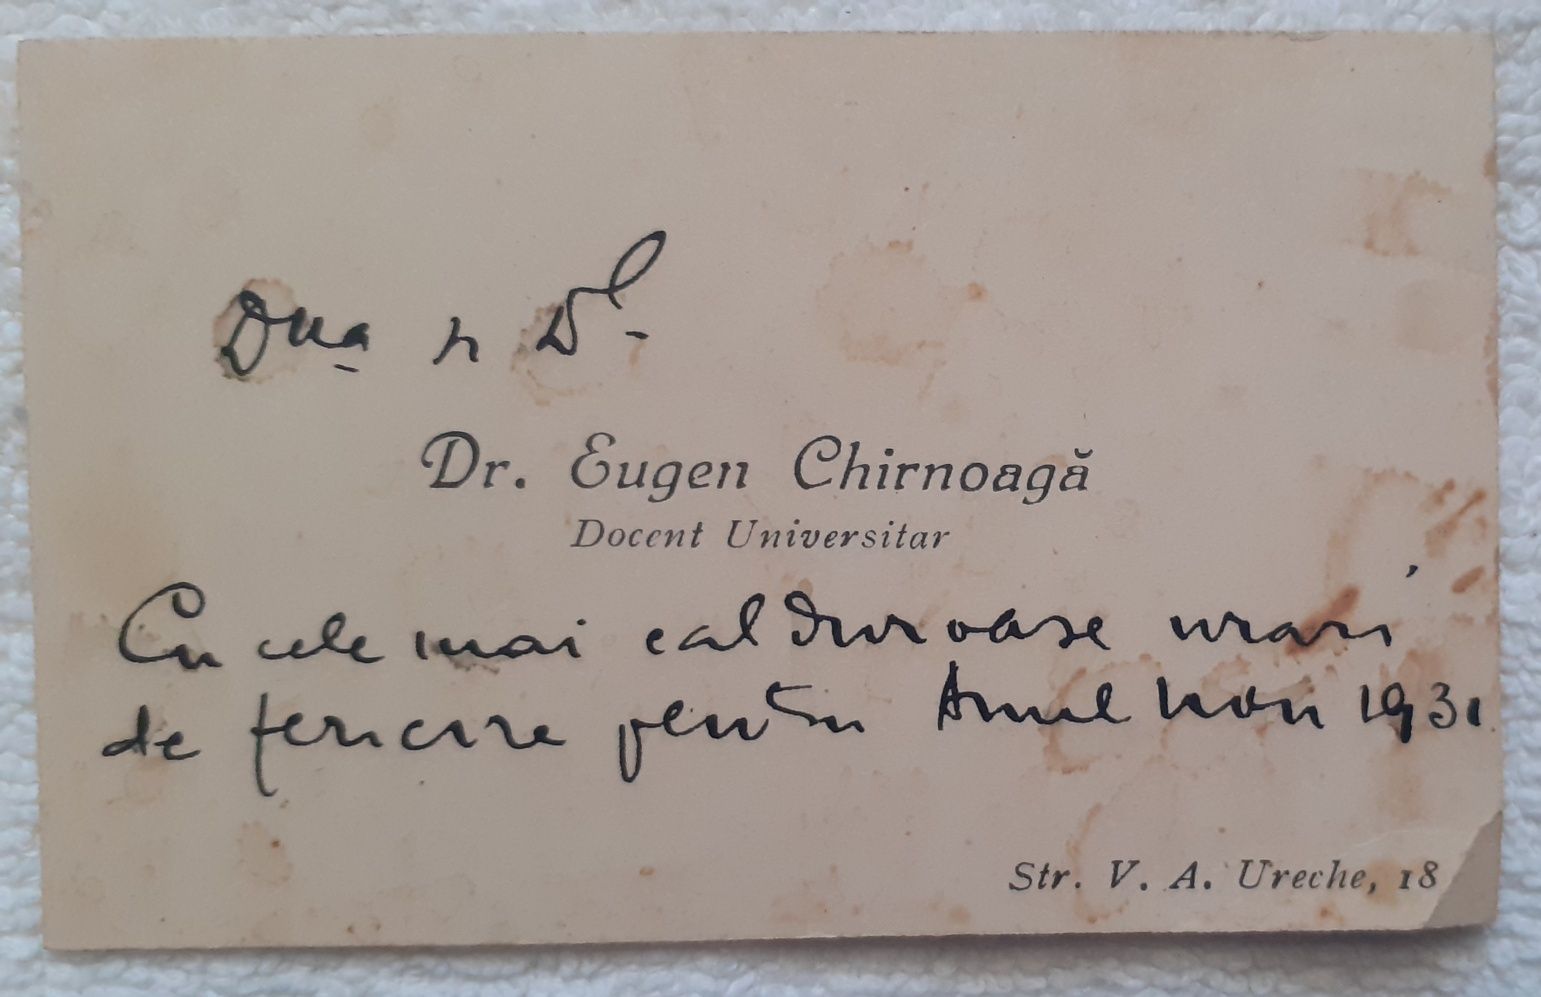 Dna și Dl.
Dr. Eugen Chirnoagă
Docent Universitar
Cu cele mai călduroase urări
de fericire pentru Anul Nou 1931
Str. V. A. Ureche, 18